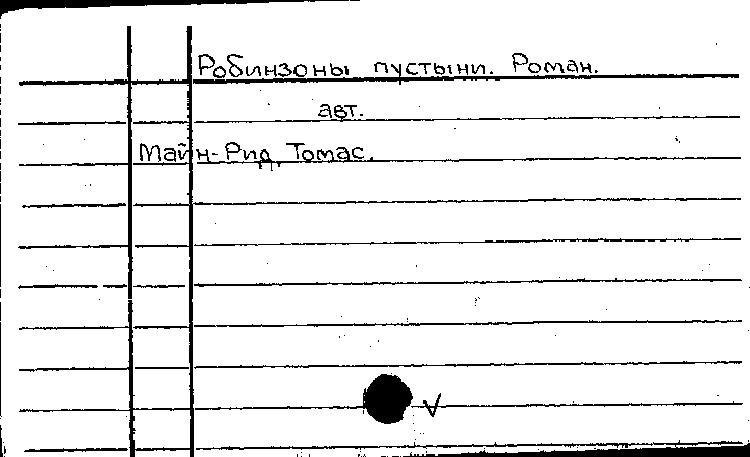 Робинзоны пустыни. Роман.
авт.
Майн-Рид, Томас.
V